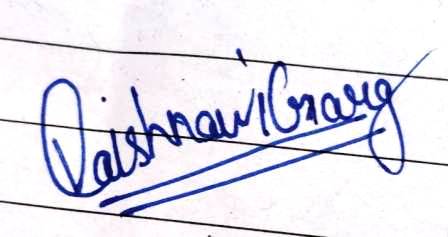 Vaishnavi Garg